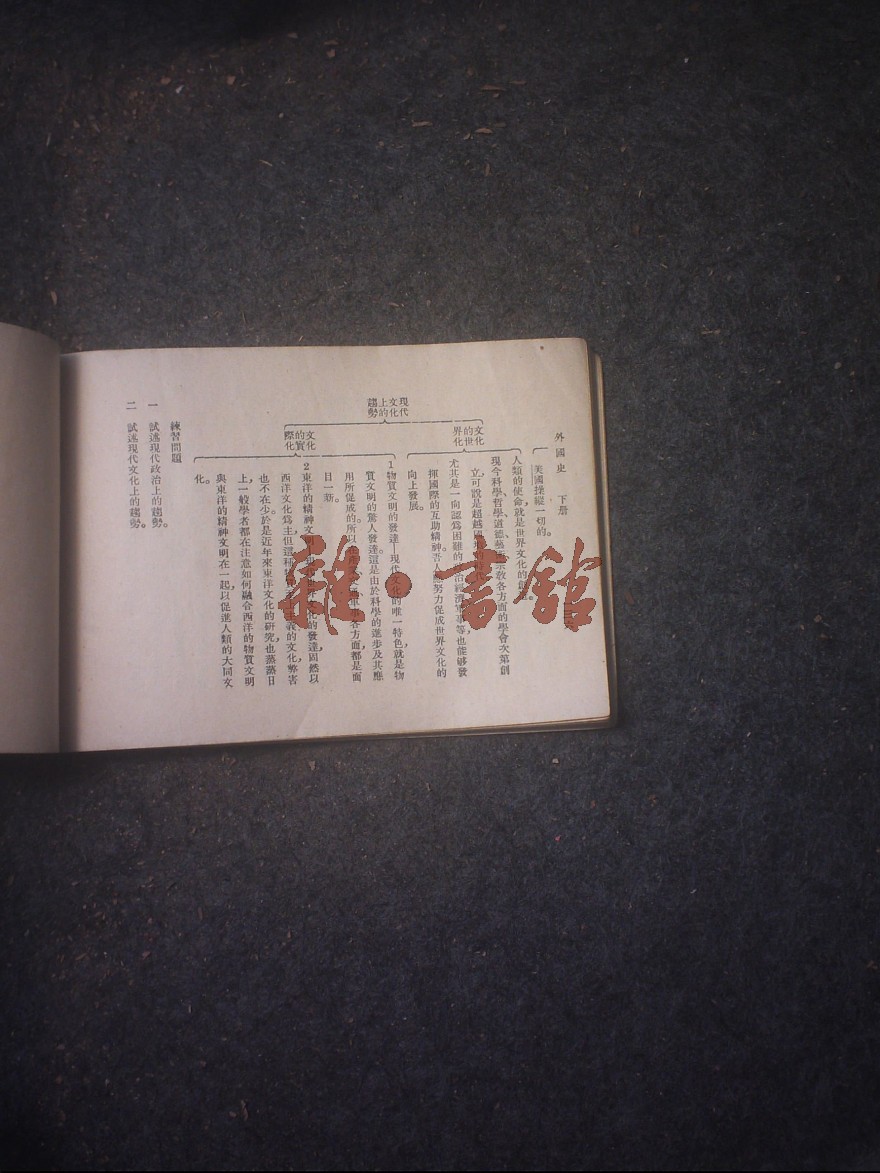 外國史 下冊
美國操縱一切的。
現代
文化
上的
趨勢
文化
的世
界化
人類的使命,就是世界文化的創
現今科學、哲學、道德、藝 宗教各方面的學會次第創
立,可說是超越國
尤其是一向認爲困難的 治經濟軍事等,也能够發
揮國際的互助精神。吾人應努力促成世界文化的
向上發展。
文化
的實
際化
1 物質文明的發達—現代文化的唯一特色,就是物
質文明的驚人發達。這是由於科學的進步及其應
用所促成的。所以在 軍事各方面,都是面
目一新。
2 東洋的精神文明 現代世界文化的發達,固然以
西洋文化爲主,但這種物質 主義的文化,弊害
也不在少。於是近年來東洋文化的研究,也蒸蒸日
上,一般學者都在注意如何融合西洋的物質文明
與東洋的精神文明在一起,以促進人類的大同文
化。
練習問題
一 試述現代政治上的趨勢。
二 試述現代文化上的趨勢。
雜·書館